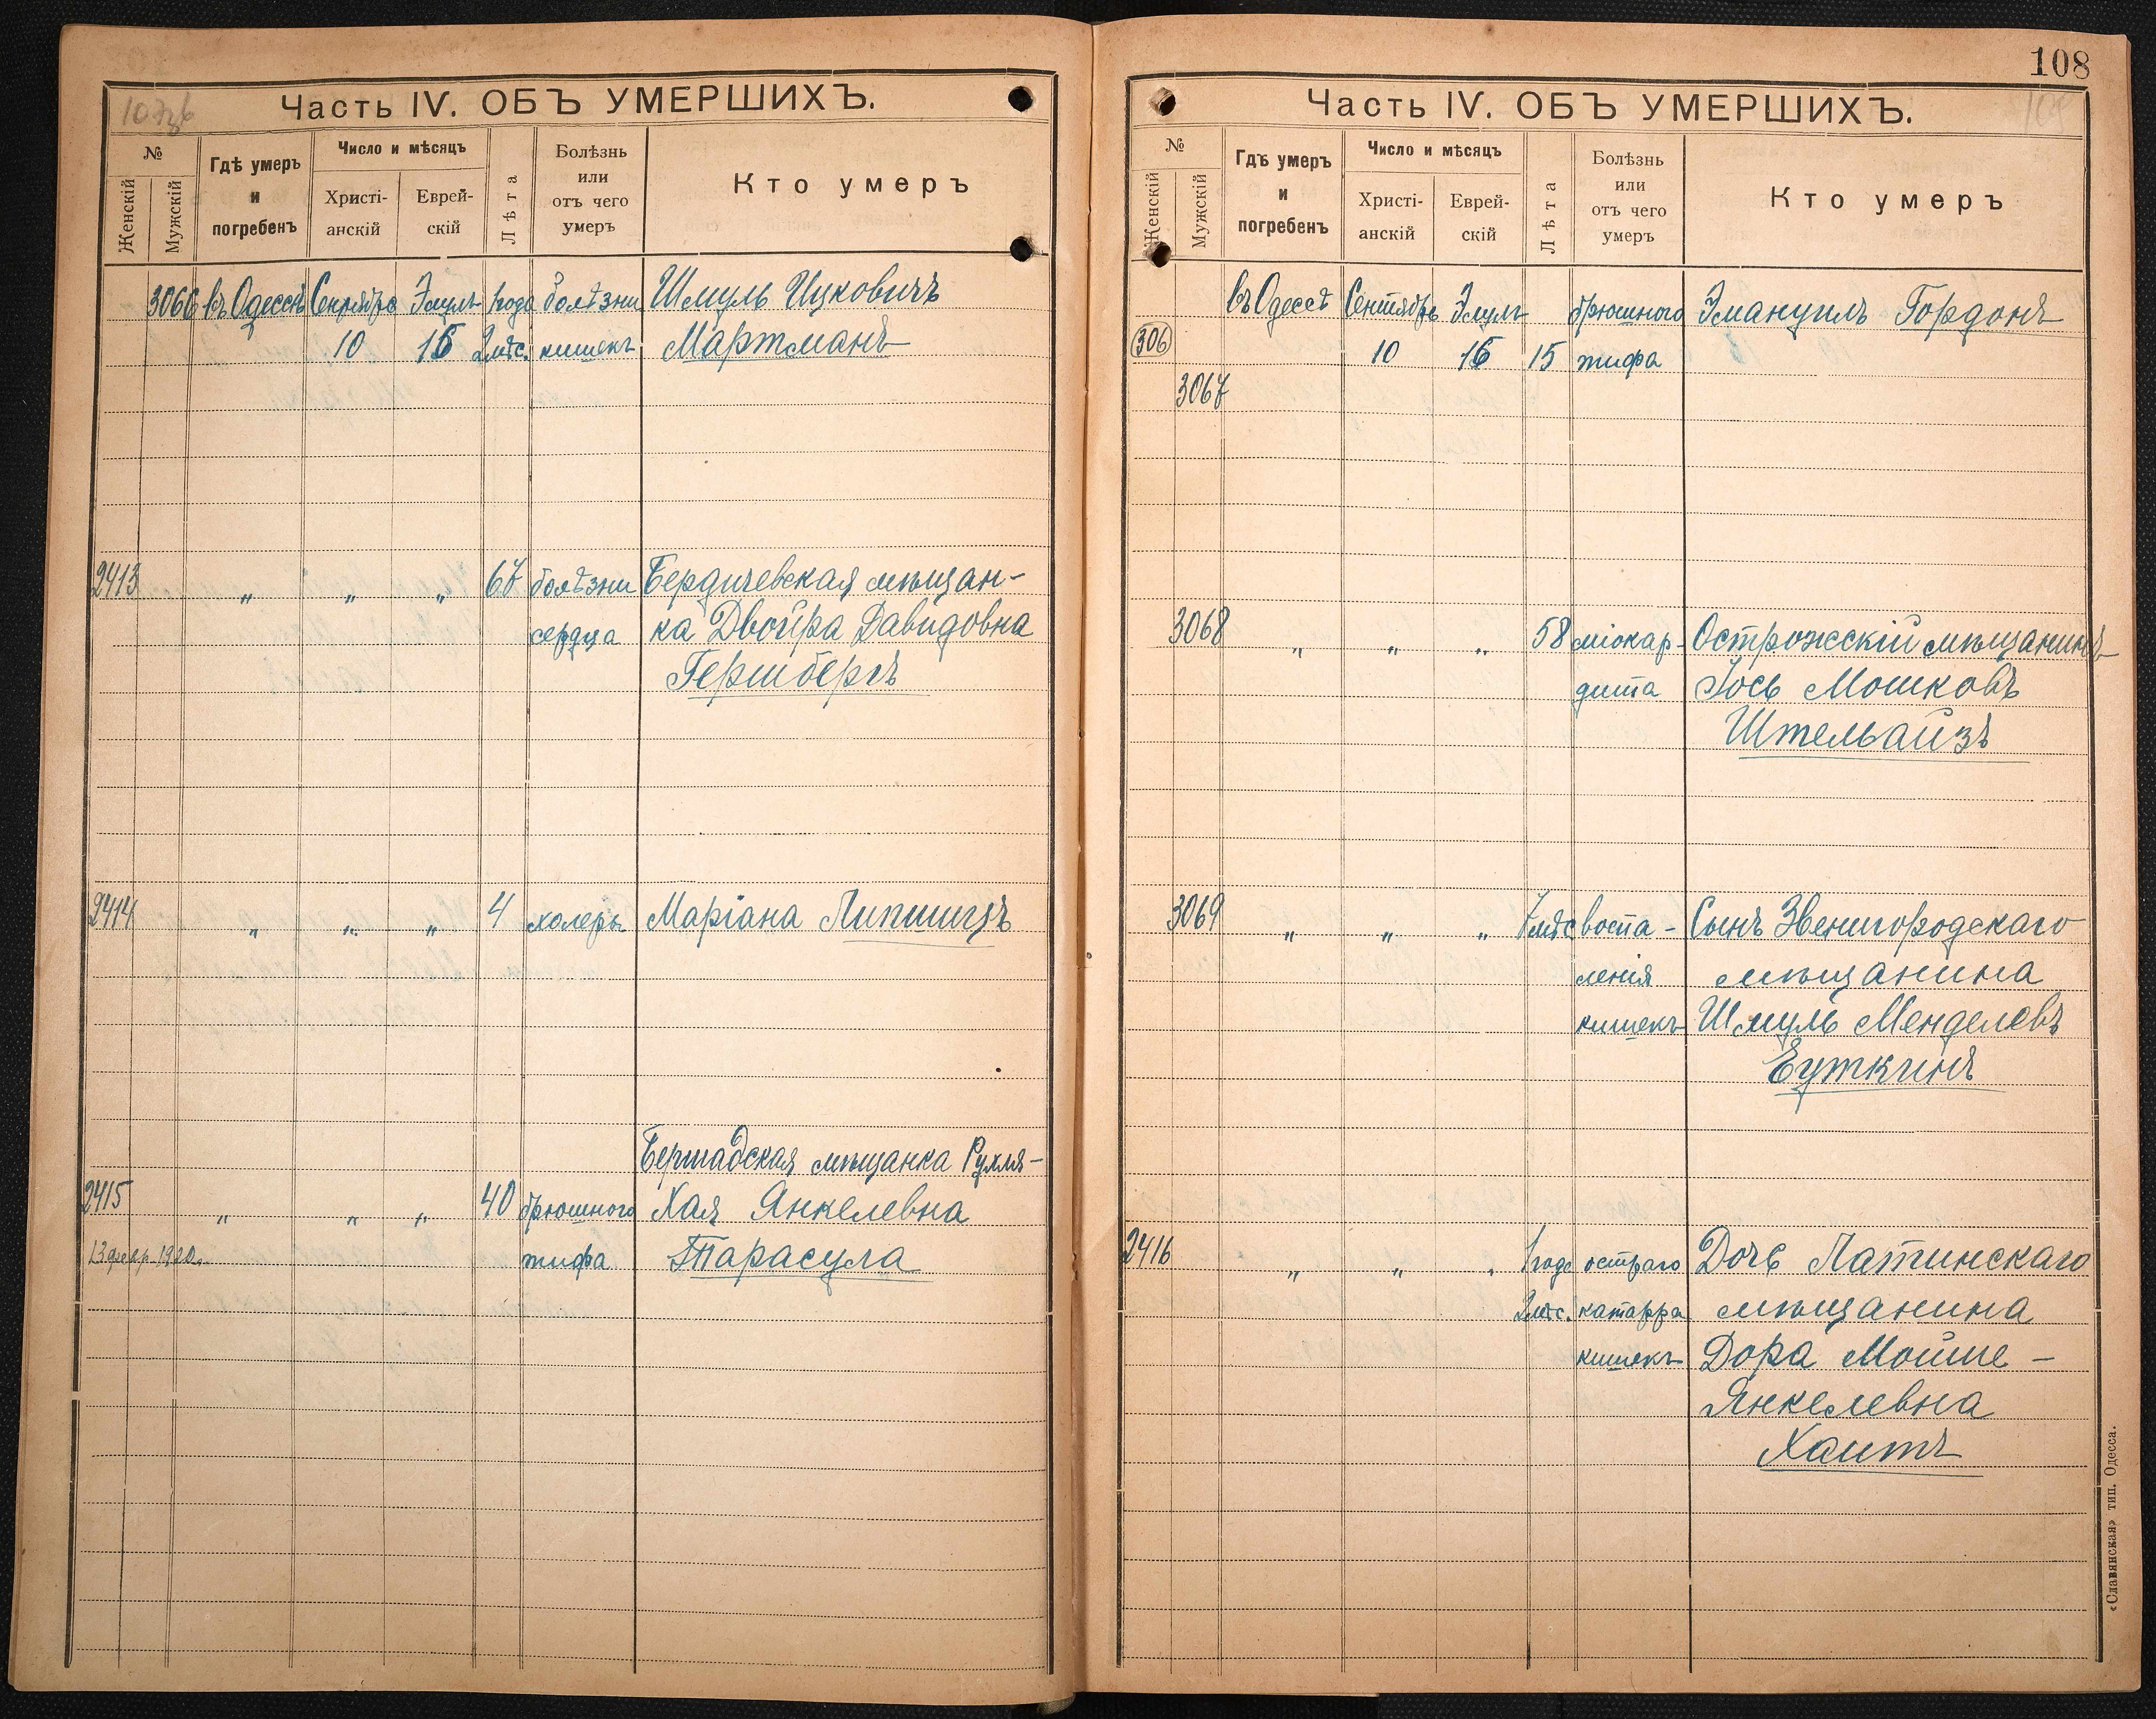 107об
Часть IV. ОБЪ УМЕРШИХЪ.
№
Женскій
Мужскій
Гдѣ умеръ и погребенъ
Число и мѣсяцъ
Христі-анскій
Еврей-скій
Лѣта
Болѣзнь или отъ чего умеръ
Кто умеръ
3066 въ Одессѣ Сентября Элулъ 1 года болѣзни Шмуль Ицковичъ
10 16 2 мѣс. кишекъ Мартманъ
2413 „ „ „ 67 болѣзни Бердичевская мѣщан-
сердца ка Двойра Давидовна
Гершбергъ
2414 „ „ „ 4 холеры Маріана Липшицъ
Бершадская мѣщанка Рухля-
2415 „ „ „ 40 брюшного Хая Янкелевна
13 февр. 1920 г. тифа Тарасула
108
Часть IV. ОБЪ УМЕРШИХЪ.
№
Женскій
Мужскій
Гдѣ умеръ и погребенъ
Число и мѣсяцъ
Христі-анскій
Еврей-скій
Лѣта
Болѣзнь или отъ чего умеръ
Кто умеръ
въ Одессѣ Сентябрь Элулъ брюшного Эмануилъ Гордонъ
306 10 16 15 тифа
3067
3068 „ „ „ 58 міокар- Острожскій мѣщанинъ
дита Іось Мошковъ
Штельвайзъ
3069 „ „ „ 7 мѣс воспа- Сынъ Звенигородскаго
ленія мѣщанина
кишекъ Шмуль Менделевъ
Буткинъ
2416 „ „ „ 1 годъ остраго Дочь Латинскаго
2 мѣс. катарра мѣщанина
кишекъ Дора Мойше-
Янкелевна
Хаитъ
«Славянская» тип. Одесса.